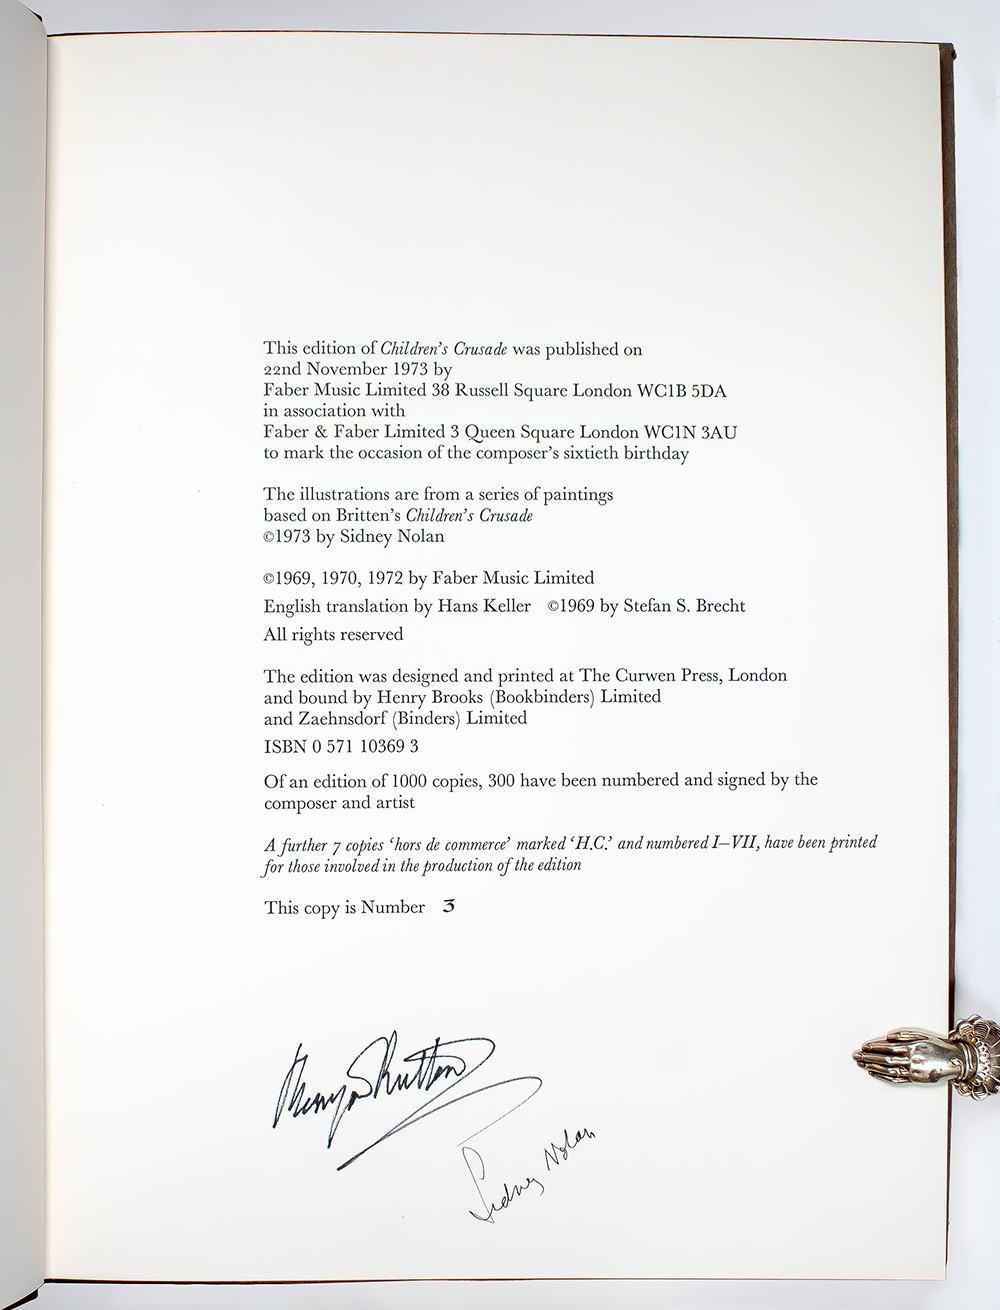 This edition of Children's Crusade was published on
22nd November 1973 by
Faber Music Limited 38 Russell Square London WC1B 5DA
in association with
Faber & Faber Limited 3 Queen Square London WC1N 3AU
to mark the occasion of the composer's sixtieth birthday
The illustrations are from a series of paintings
based on Britten's Children's Crusade
©1973 by Sidney Nolan
©1969, 1970, 1972 by Faber Music Limited
English translation by Hans Keller ©1969 by Stefan S. Brecht
All rights reserved
The edition was designed and printed at The Curwen Press, London
and bound by Henry Brooks (Bookbinders) Limited
and Zaehnsdorf (Binders) Limited
ISBN 0 571 10369 3
Of an edition of 1000 copies, 300 have been numbered and signed by the
composer and artist
A further 7 copies 'hors de commerce' marked 'H.C.' and numbered I–VII, have been printed
for those involved in the production of the edition
This copy is Number 3
Benjamin Britten
Sidney Nolan